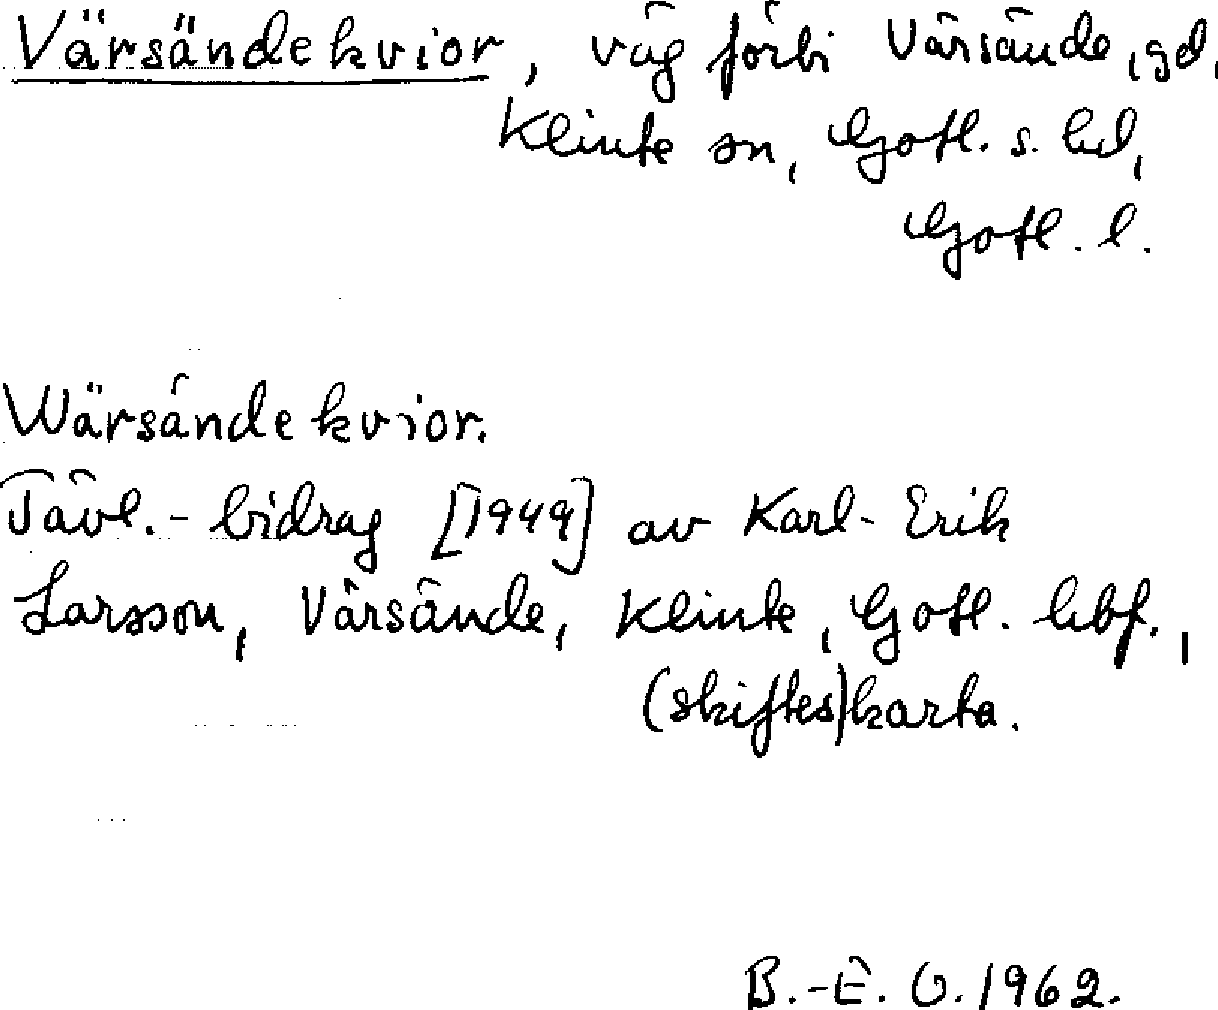 Värsändekvior, väg förbi Värsände, gd,
Klinte sn, Gotl. s. hd,
Gotl. l.
Wärsändekvior.
Tävl.-bidrag [1949] av Karl-Erik
Larsson, Värsände, Klinte, Gotl. hbf.,
(skiftes)karta.
B.-E. O. 1962.